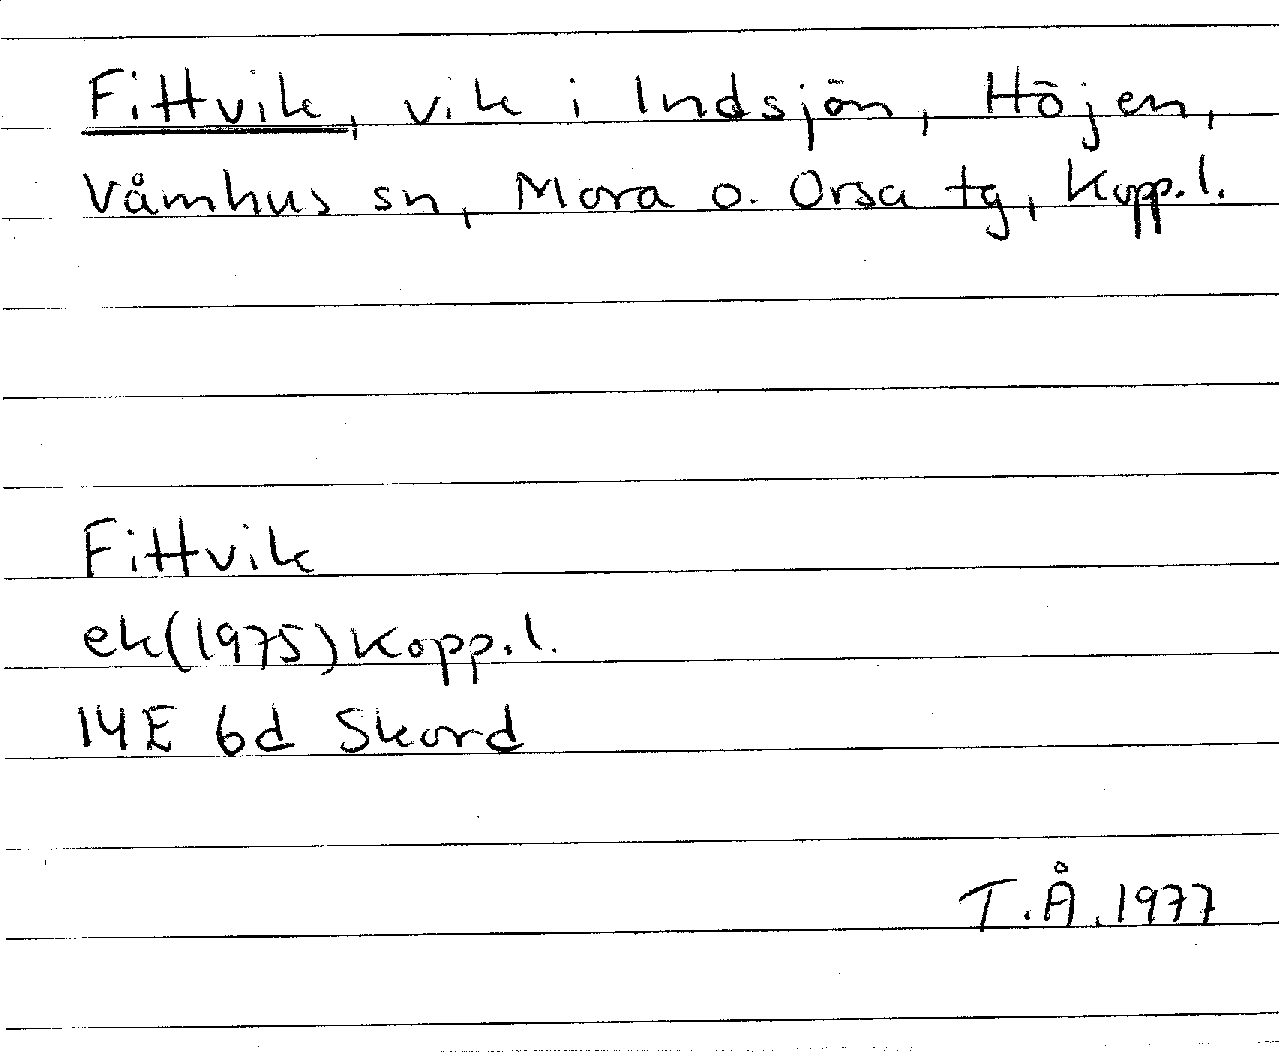 Fittvik, vik i Indsjön, Höjen,
Våmhus sn, Mora o. Orsa tg, Kopp.l.
Fittvik
ek(1975)Kopp.l.
14E 6d Skord
T.Å.1977